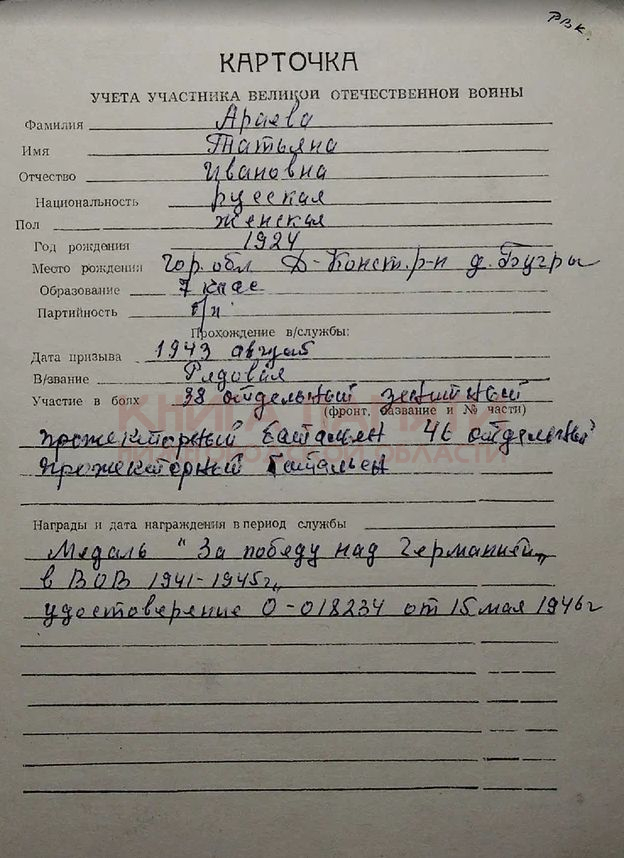 РВК.
КАРТОЧКА
УЧЕТА УЧАСТНИКА ВЕЛИКОЙ ОТЕЧЕСТВЕННОЙ ВОЙНЫ
Фамилия Араева
Имя Татьяна
Отчество Ивановна
Национальность русская
Пол женская
Год рождения 1924
Место рождения Гор. обл Д-Конст. р-н д. Бугры
Образование 7 клас
Партийность б/п
Прохождение в/службы:
Дата призыва 1943 август
В/звание Рядовая
Участие в боях 38 отдельный зенитный
(фронт, название и № части)
КНИГА ПАМЯТИ
НИЖЕГОРОДСКОЙ ОБЛАСТИ
прожекторный баталиен 46 отдельный
прожекторный баталиен
Награды и дата награждения в период службы
Медаль "За победу над Германией„
в ВОВ 1941-1945г„
удостоверение О-018234 от 15 мая 1946г